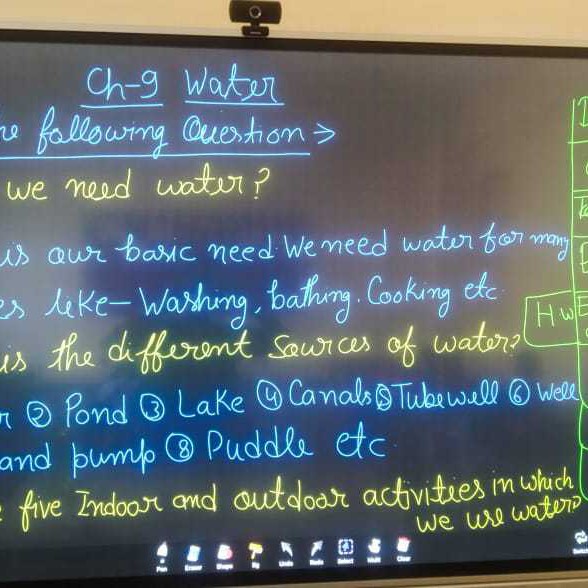 Ch-9 Water
he following Question →
we need water?
is our basic need. We need water for many
es like- Washing, bathing. Cooking etc.
is the different sources of water?
r ② Pond ③ Lake ④ Canals ⑤ Tubewell ⑥ Well
and pump ⑧ Puddle etc.
e five Indoor and outdoor activities in which
we use water?
HW
Pen Eraser Shape Bg Undo Redo Select Multi Clear